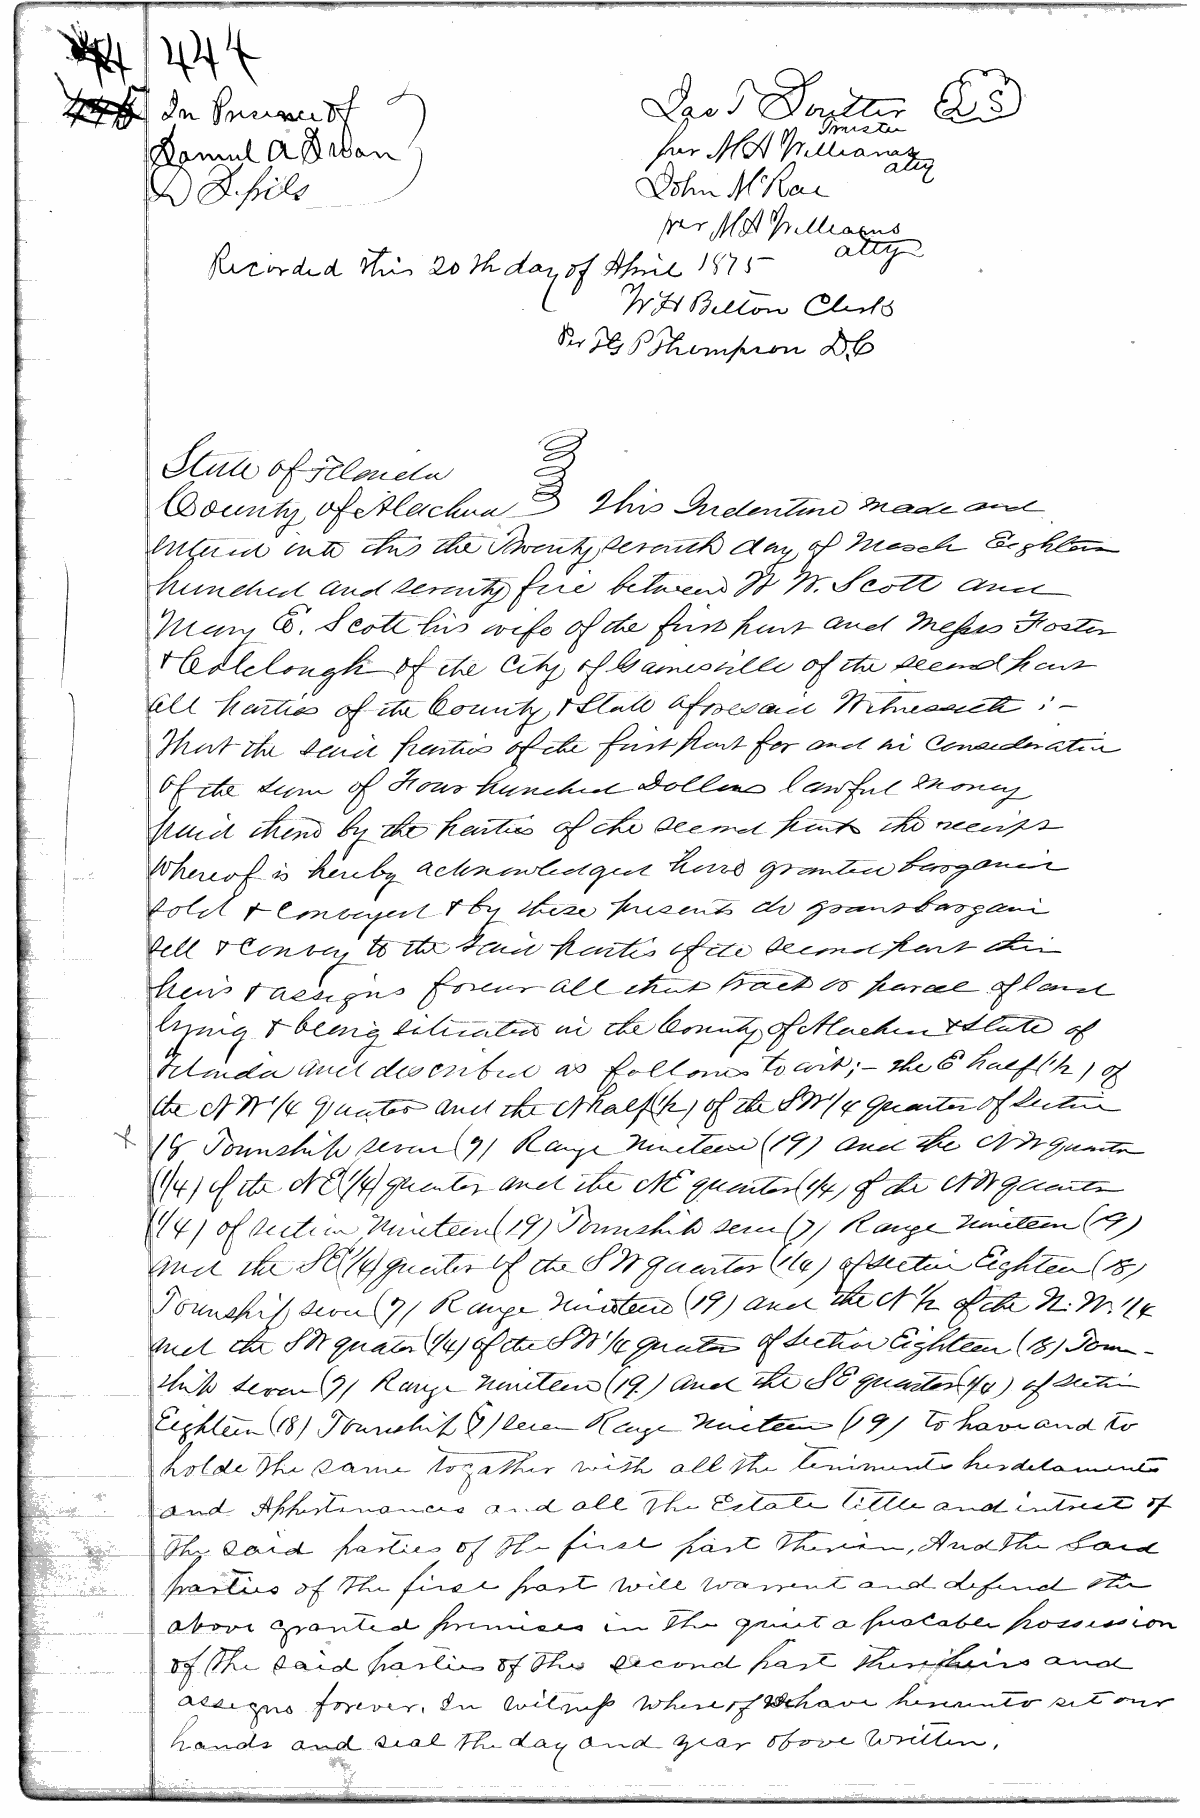 444
In Presence of
Samuel A Swan
per M A Williams
Trustee
atty
John McRae
per M A Williams
atty
Recorded this 20th day of April 1875
W H Belton Clerk
Per P Thompson D.C
State of Florida
County of Alachua This Indenture made and
entered into this the Twenty seventh day of March Eighteen
hundred and seventy five between W. Scott and
Mary E. Scott his wife of the first part and Messrs Foster
& Colclough of the City of Gainesville of the second part
all parties of the County & State aforesaid Witnesseth :-
That the said parties of the first part for and in Consideration
of the sum of Four hundred Dollars lawful money
paid them by the parties of the second part the receipt
whereof is hereby acknowledged have granted bargained
sold & Conveyed & by these presents do grant bargain
sell & Convey to the said parties of the second part their
heirs & assigns forever all that tract or parcel of land
lying & being situated in the County of Alachua & State of
Florida and described as follows to wit;- the E half (½) of
the N W 1/4 quarter and the N half (½) of the SW 1/4 quarter of Section
x 18 Township seven (7) Range Nineteen (19) and the N W quarter
(1/4) of the NE (1/4) quarter and the NE quarter (1/4) of the N W quarter
(1/4) of section Nineteen (19) Township seven (7) Range Nineteen (19)
and the SE (1/4) quarter of the S W quarter (1/4) of section Eighteen (18)
Township seven (7) Range Nineteen (19) and the N ½ of the N. W. 1/4
and the SW quarter (1/4) of the SW 1/4 quarter of section Eighteen (18) Town-
ship seven (7) Range Nineteen (19) and the SE quarter (1/4) of section
Eighteen (18) Township (7) seven Range Nineteen (19) to have and to
holde the same togather with all the teniments herdetaments
and Appertinances and all the Estate tittle and intrest of
the said parties of the first part therein, And the Said
parties of the first part will warrent and defend the
above granted premises in the quiet a peacable possession
of the said parties of the second part their heirs and
assigns forever. In witness whereof We have hereunto set our
hands and seal the day and year above written.